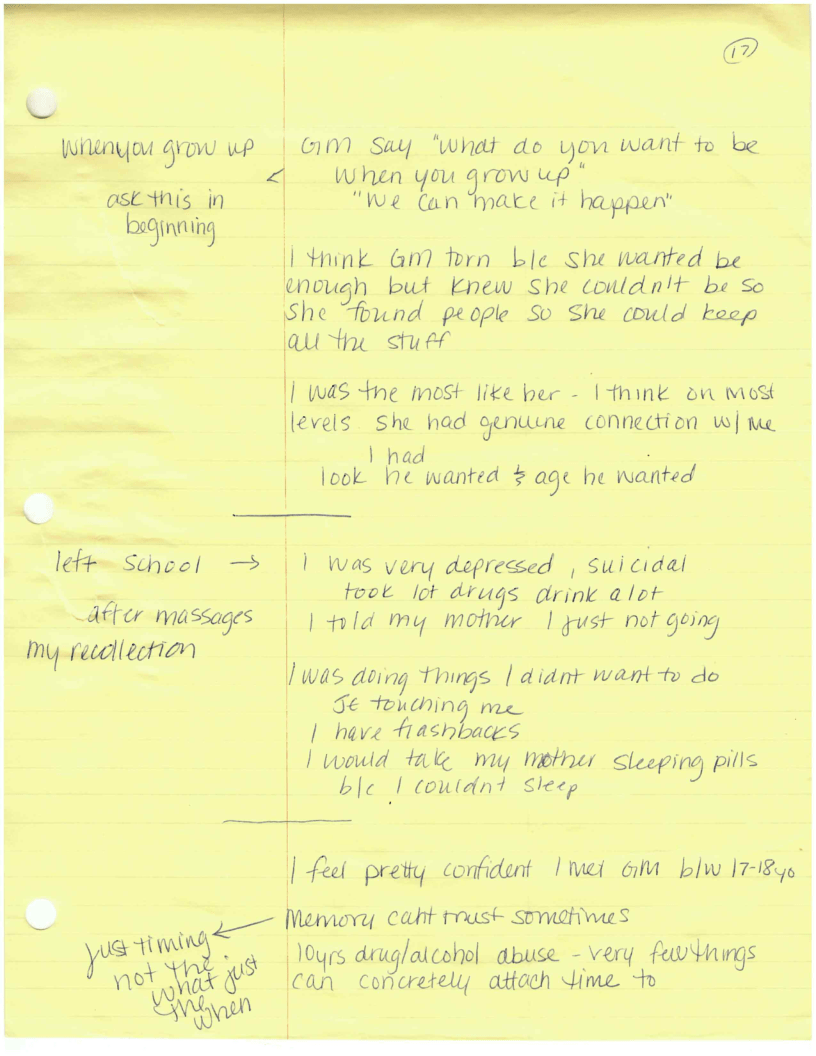 17
when you grow up
ask this in
beginning
GM say "what do you want to be
when you grow up"
"we can make it happen"
I think GM torn b/c she wanted be
enough but knew she couldn't be so
she found people so she could keep
all the stuff
I was the most like her - I think on most
levels she had genuine connection w/ me
I had
look he wanted & age he wanted
left school →
after massages
my recollection
I was very depressed, suicidal
took lot drugs drink a lot
I told my mother I just not going
I was doing things I didnt want to do
JE touching me
I have flashbacks
I would take my mother sleeping pills
b/c I couldnt sleep
I feel pretty confident I met GM b/w 17-18yo
Memory cant trust sometimes
just timing
not the
what just
the
when
10yrs drug/alcohol abuse - very few things
can concretely attach time to